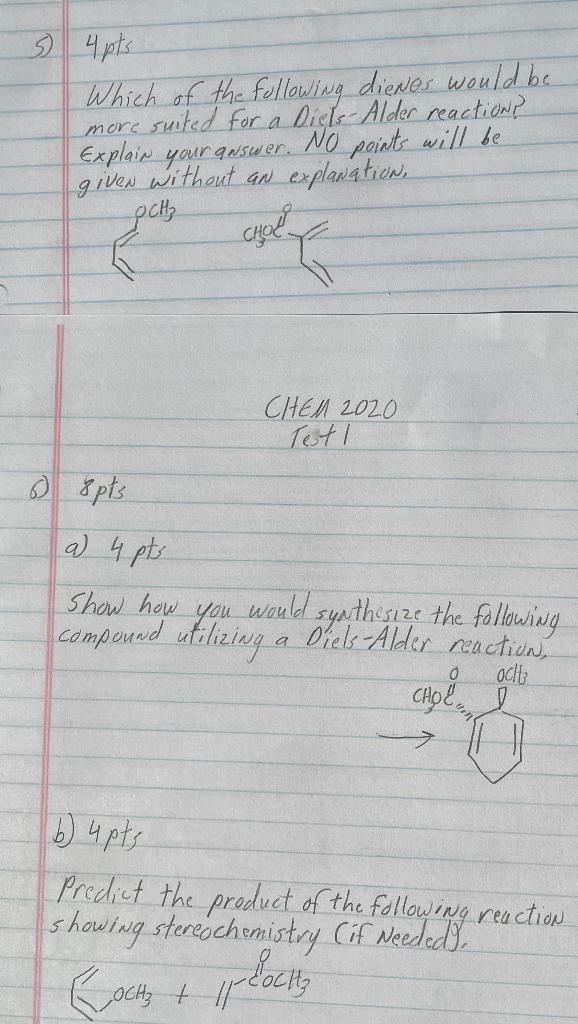 5) 4 pts
Which of the following dienes would be
more suited for a Diels-Alder reaction?
Explain your answer. NO points will be
given without an explanation.
OCH3
O
CH3OC
CHEM 2020
Test 1
6) 8pts
a) 4 pts
Show how you would synthesize the following
compound utilizing a Diels-Alder reaction.
O OCH3
CH3OC
b) 4 pts
Predict the product of the following reaction
showing stereochemistry (if needed).
O
OCH3 + COCH3